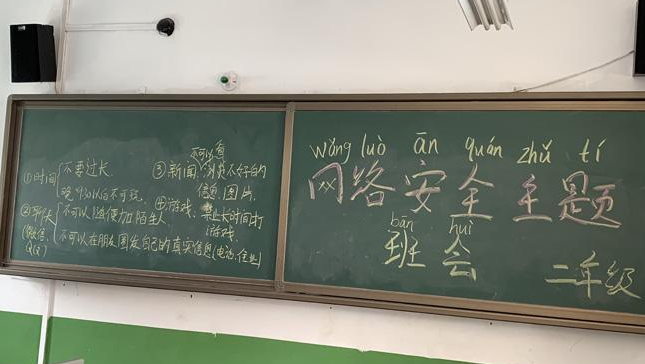 ①时间 不要过长
晚9:30以后不可玩
②聊天 不可以随便加陌生人
(微信、QQ) 不可以在朋友圈发自己的真实信息(电话、住址)
③新闻 不可以浏览不好的
信息、图片
④游戏 禁止长时间打
游戏
wǎng luò ān quán zhǔ tí
网络安全主题
bān huì
班会
二年级